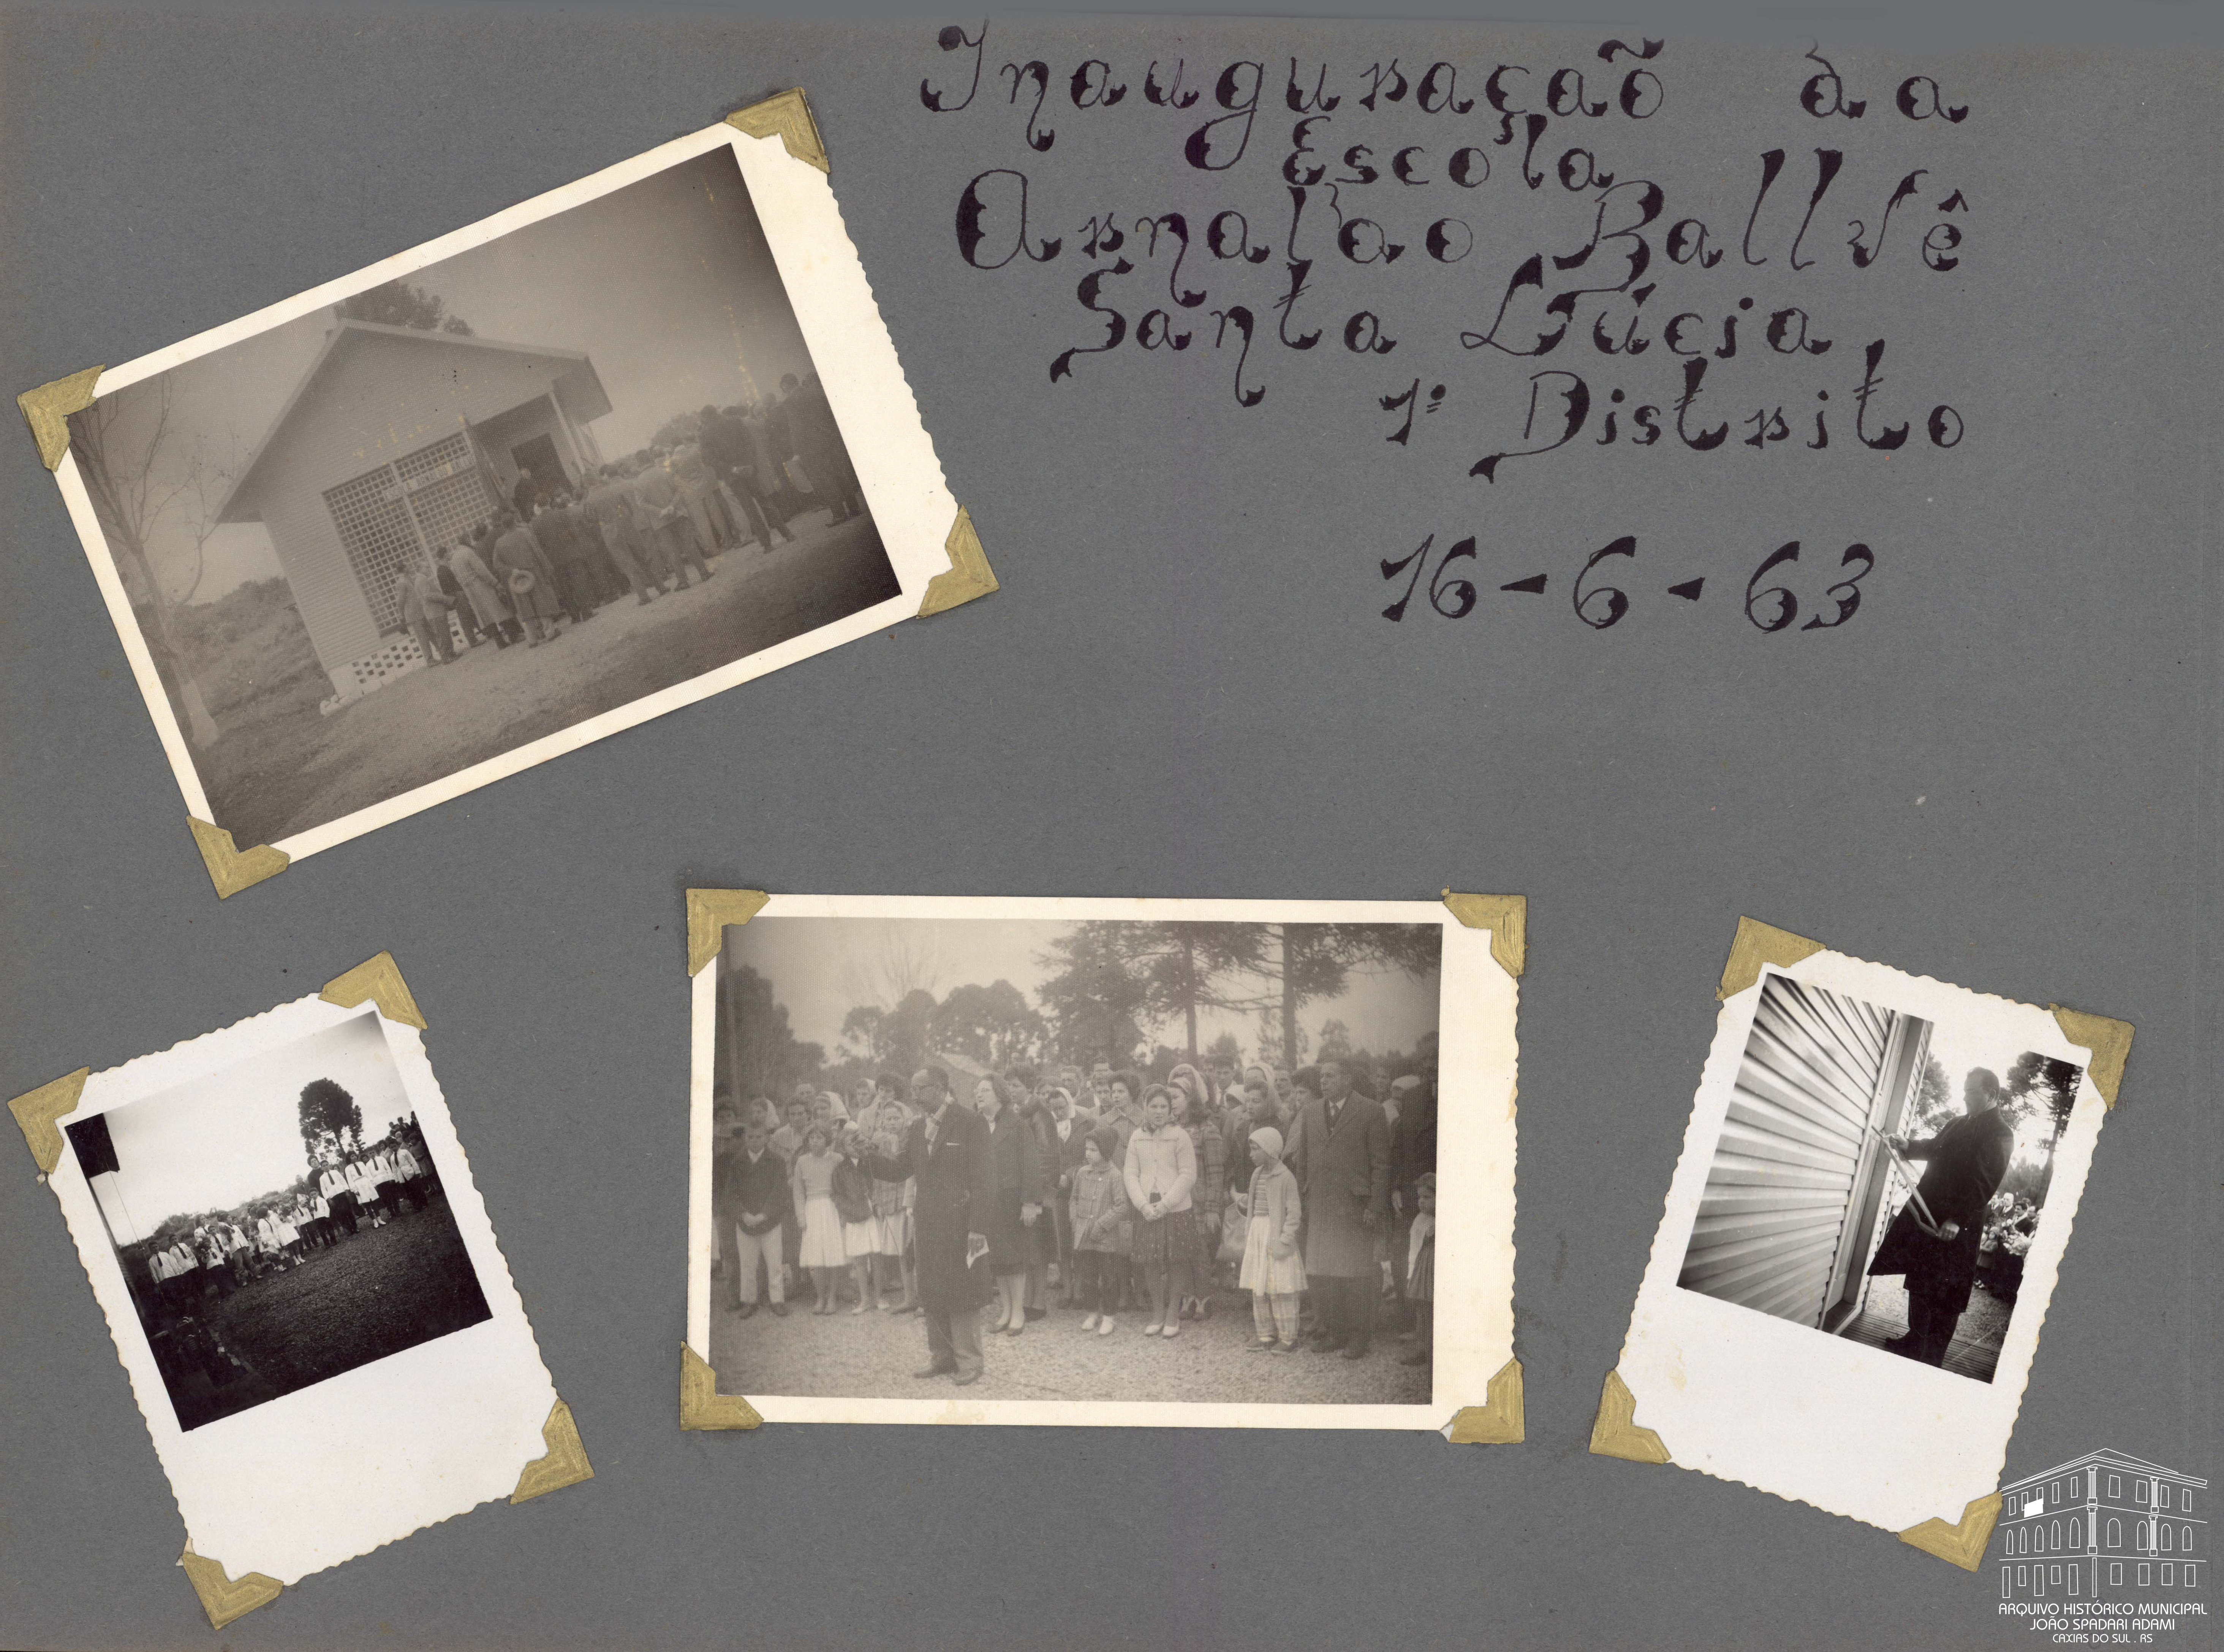 Inauguração da
Escola
Arnaldo Ballvê
Santa Lúcia,
1º Distrito
16-6-63
ARQUIVO HISTÓRICO MUNICIPAL
JOÃO SPADARI ADAMI
CAXIAS DO SUL . RS